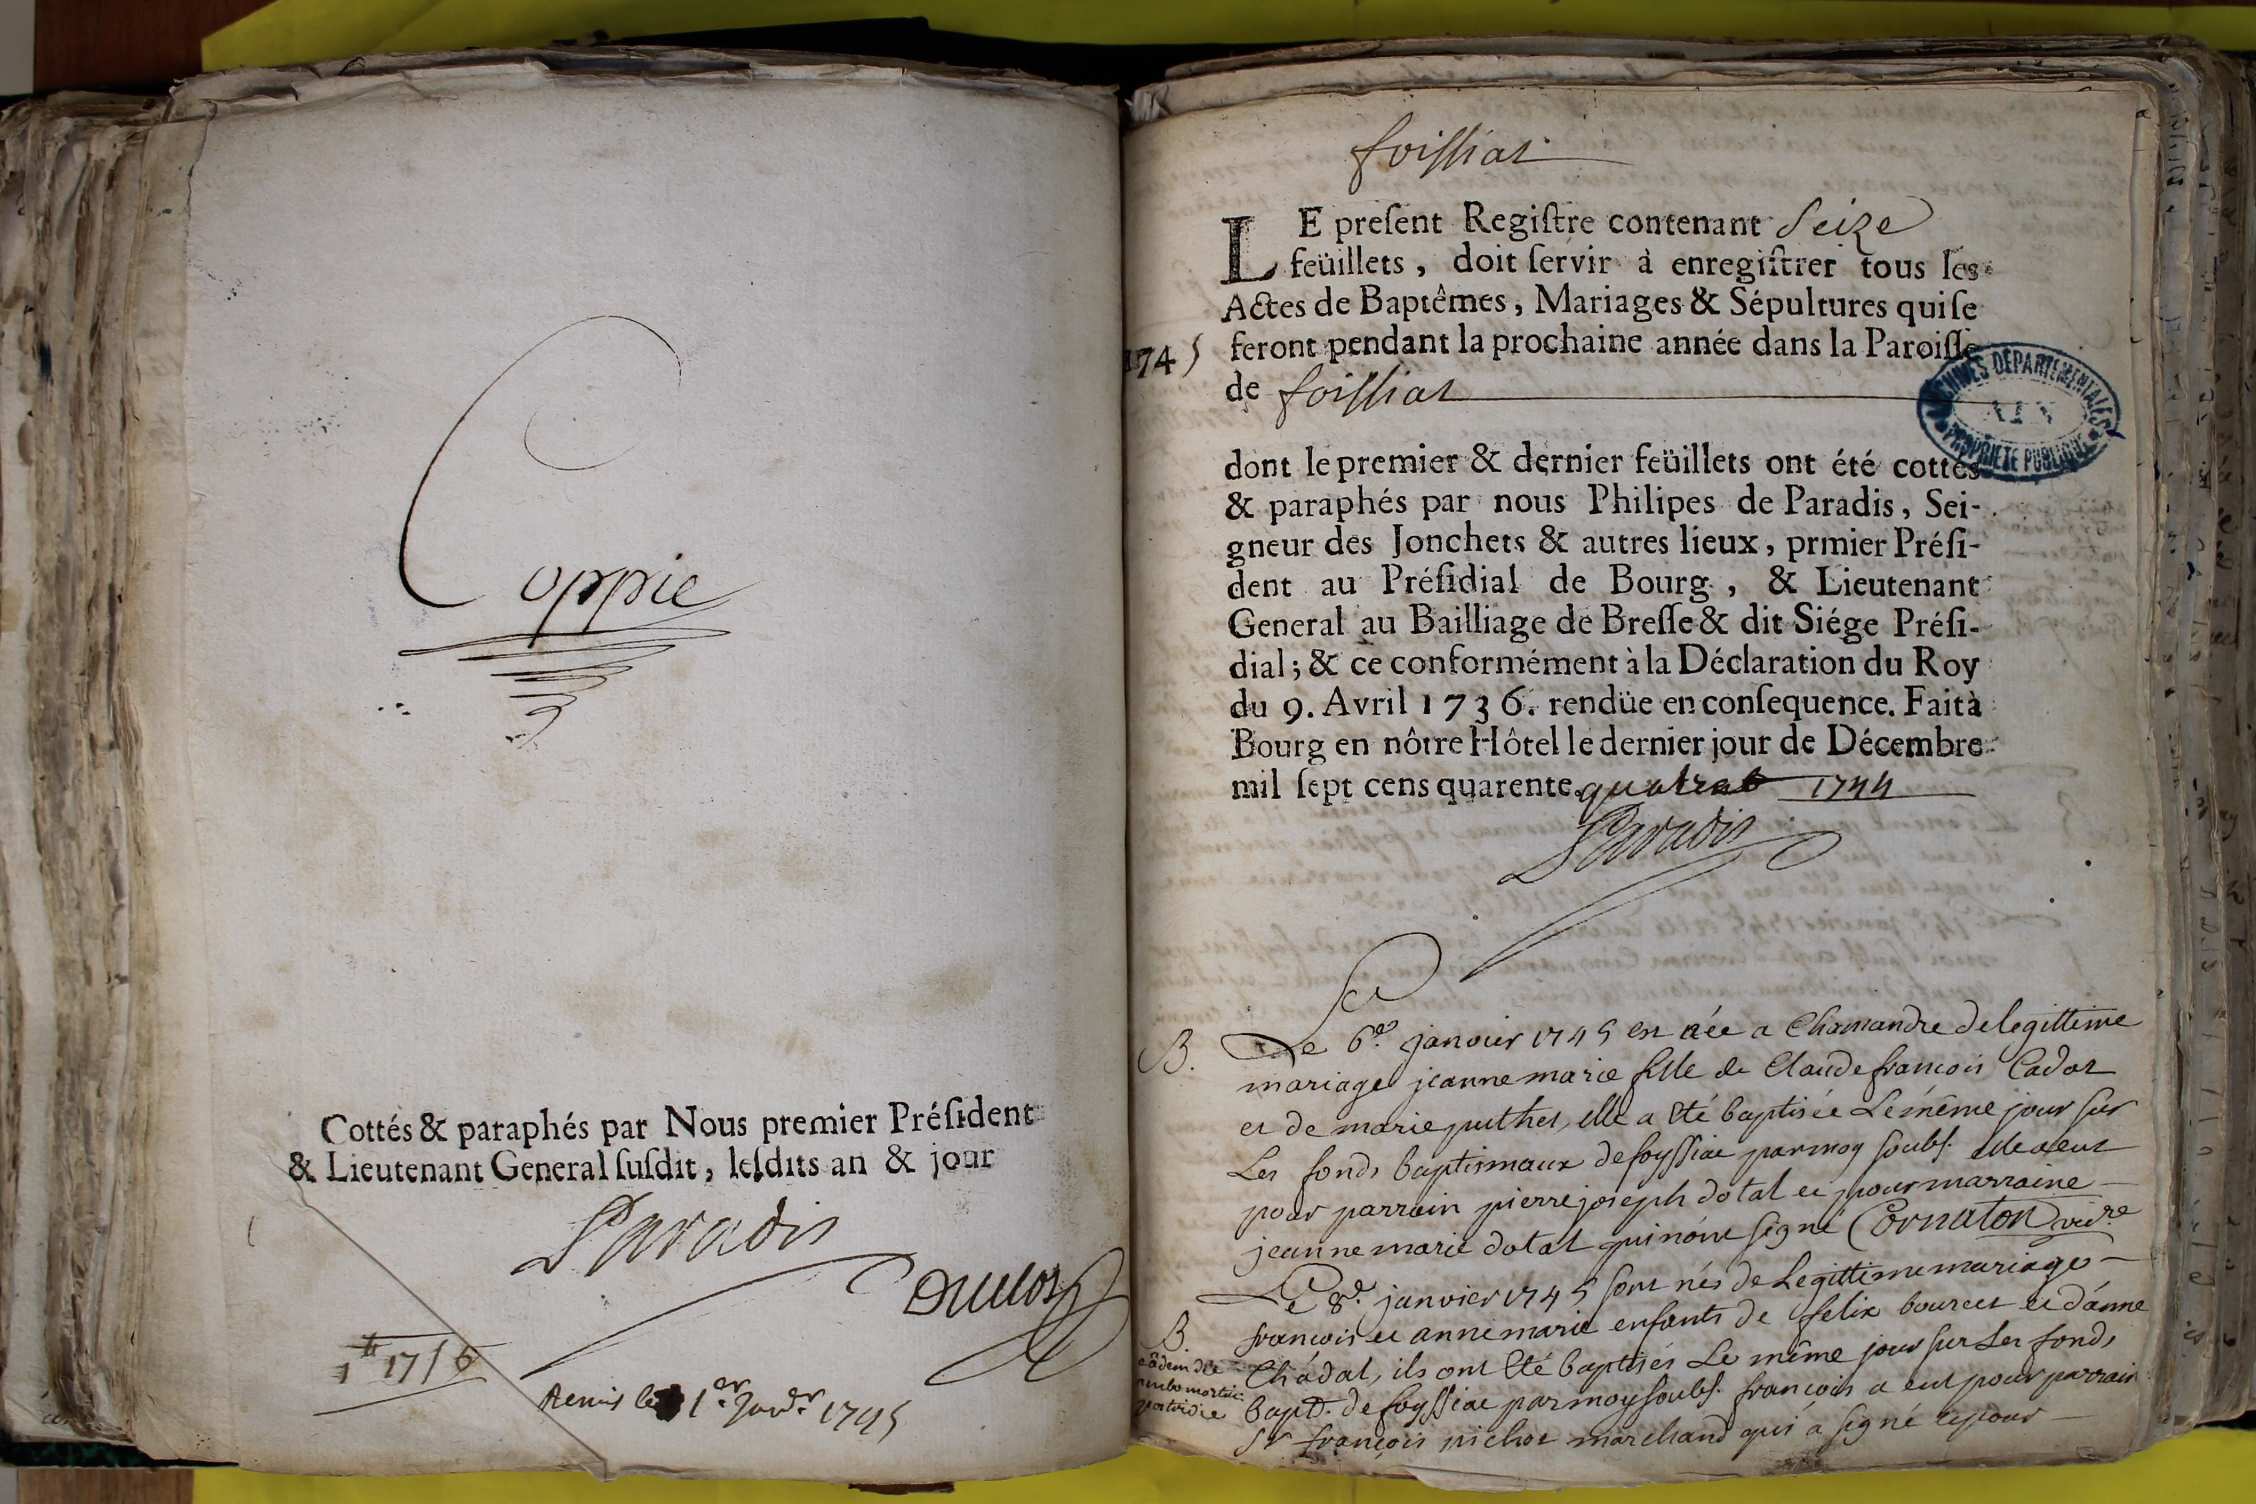 Coppie
Cottés & paraphés par Nous premier Préſident
& Lieutenant General ſuſdit, leſdits an & jour
Paradis
Duclos
Remis le 1er Janvr 1745
foissiat
LE preſent Regiſtre contenant Seize
feüillets, doit ſervir à enregiſtrer tous les
Actes de Baptêmes, Mariages & Sépultures qui ſe
feront pendant la prochaine année dans la Paroiſſe
1745
de foissiat
ARCHIVES DÉPARTEMENTALES
AIN
PROPRIÉTÉ PUBLIQUE
dont le premier & dernier feüillets ont été cottés
& paraphés par nous Philipes de Paradis, Sei-
gneur des Jonchets & autres lieux, prmier Préſi-
dent au Préſidial de Bourg, & Lieutenant
General au Bailliage de Breſſe & dit Siége Préſi-
dial; & ce conformément à la Déclaration du Roy
du 9. Avril 1736. rendüe en conſequence. Fait à
Bourg en nôtre Hôtel le dernier jour de Décembre
mil ſept cens quarente quatre 1744
Paradis
B. Le 6e janvier 1745 est née a Chamandre de legittime
mariage jeanne marie fille de Claude francois Cadot
et de marie puthet, elle a été baptisée Le même jour sur
Les fonds baptismaux de foyssiac par moy soubs. elle a eut
pour parrain pierre joseph dotal et pour marraine
jeanne marie dotal qui n'ont signé Cornaton vicre
Le 8e janvier 1745 sont nés de Legittime mariage
B. francois et anne marie enfants de felix bourcet et d'anne
eâdem die
ambo mortui
Chádal, ils ont été baptisés Le même jour sur Les fonds
bapt. de foyssiac par moy soubs. francois a eut pour parrain
Sr françois pichot marchand qui a signé et pour